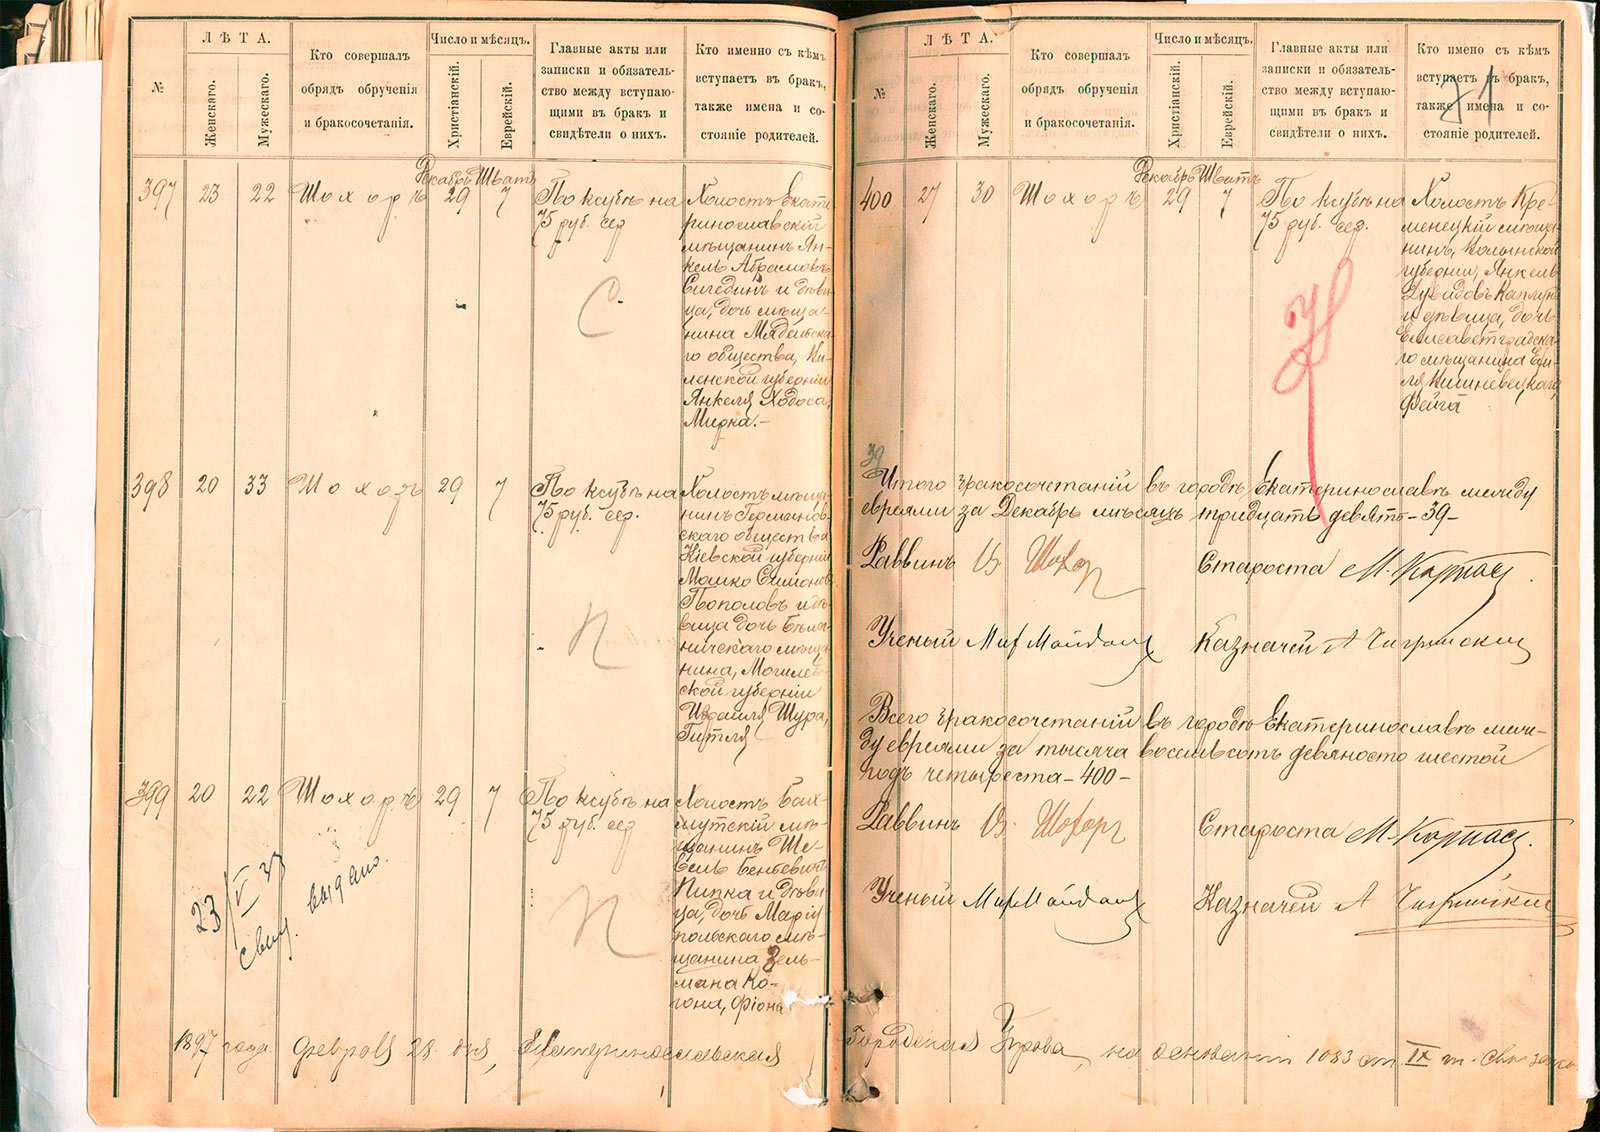 №
ЛѢТА.
Женскаго.
Мужескаго.
Кто совершалъ
обрядъ обрученія
и бракосочетанія.
Число и мѣсяцъ.
Христіанскій.
Еврейскій.
Главные акты или
записки и обязатель-
ство между вступаю-
щими въ бракъ и
свидѣтели о нихъ.
Кто именно съ кѣмъ
вступаетъ въ бракъ,
также имена и со-
стояніе родителей.
Декабрь Шватъ
397 23 22 Шохоръ 29 7
По ксубѣ на
75 руб. сер
С.
Холостъ Екате
ринославскій
мѣщанинъ Ян-
кель Абрамовъ
Сигединъ и дѣви-
ца, дочь мѣща-
нина Мядельска-
го общества, Ви-
ленской губерніи
Янкеля Ходоса,
Мирка.-
398 20 33 Шохоръ 29 7
По ксубѣ на
75 руб. сер.
П
Холостъ мѣща-
нинъ Германов-
скаго общества
Кіевской губерніи
Мошко Симонов
Пополовъ и дѣ-
вица дочь Бѣлы-
ничскаго мѣща-
нина, Могилев-
ской губерніи
Израиля Шура,
Гитля
399 20 22 Шохоръ 29 7
По ксубѣ на
75 руб. сер
П
Холостъ Бах-
мутскій мѣ-
щанинъ Ше-
вель Бенцевичъ
Пипка и дѣви-
ца, дочь Маріу
польскаго мѣ-
щанина Зель-
мана Ко-
гона,
23/V 37
свид. выдано.
1897 года Февраля 28 дня, Екатеринославская
№
ЛѢТА.
Женскаго.
Мужескаго.
Кто совершалъ
обрядъ обрученія
и бракосочетанія.
Число и мѣсяцъ.
Христіанскій.
Еврейскій.
Главные акты или
записки и обязатель-
ство между вступаю-
щими въ бракъ и
свидѣтели о нихъ.
Кто имено съ кѣмъ
вступаетъ въ бракъ,
также имена и со-
стояніе родителей.
Декабрь Шватъ
400 27 30 Шохоръ 29 7
По ксубѣ на
75 руб. сер.
Холостъ Кре-
менецкій мѣща-
нинъ, Волынской
губерніи, Янкель
Дувидовъ Каплунъ
и дѣвица, дочь
Елисаветградска-
го мѣщанина
Вишневецкаго,
Фейга
39
Итого бракосочетаній въ городѣ Екатеринославѣ между
евреями за Декабрь мѣсяцъ тридцать девять - 39 -
Раввинъ Шохоръ Староста М. Карпасъ
Ученый Майданъ Казначей А Чигринскій
Всего бракосочетаній въ городѣ Екатеринославѣ меж-
ду евреями за тысяча восемьсотъ девяносто шестой
годъ четыреста - 400 -
Раввинъ Шохоръ Староста М. Карпасъ.
Ученый Майданъ Казначей А Чигринскій
Городская Управа, на основаніи 1083 ст. IX т. Св.